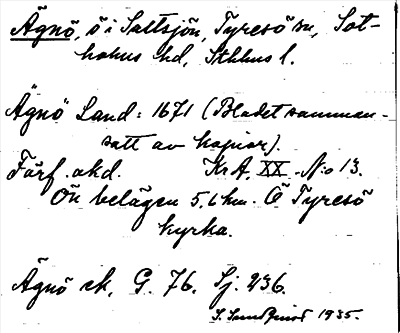 Ägnö, ö i Saltsjön, Tyresö sn, Sot-
holms hd, Sthlms l.
Ägnö Land: 1671 (Bladet samman-
satt av kopior).
Förf. okd. KrA, XX. N:o 13.
Ön belägen 5,6 km. Ö Tyresö
kyrka.
Ägnö ek, G. 76. Sj. 236.
1935.